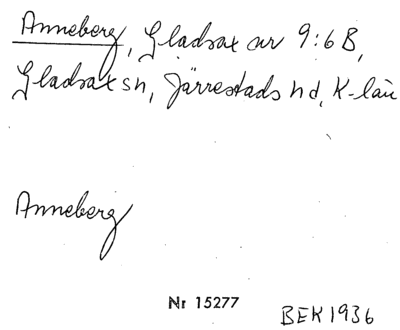 Anneberg, Gladsax nr 9:6 B,
Gladsax sn, Järrestads hd, K-län
Anneberg
Nr 15277
BEK 1936